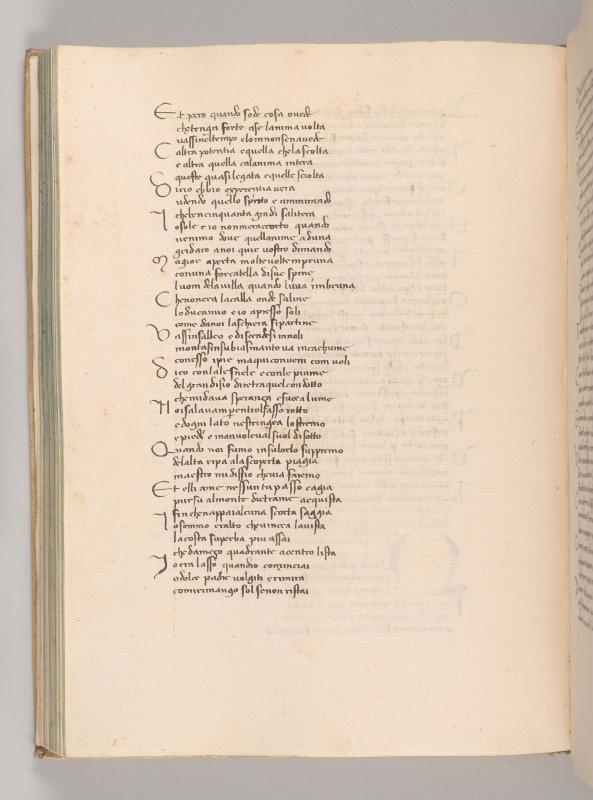 Et pero quando sode cosa o vede
che tenga forte a se lanima volta
vassine eltempo e lom non se navede
Caltra potentia e quella che lascolta
e altra quella ca lanima intera
queste quasi legata e quelle sciolta
Dicio ebbio experientia vera
udendo quello spirito e amirando
che ben cinquanta gradi salitera
Io sole e io non mera accorto quando
venimo dove quellanime aduna
gridaro a noi quie vostro dimando
Magior aperta molte volte mpruna
con una forcatella di sue spine
luom dela villa quando luva imbruna
Che non era la calla onde saline
lo duca mio e io apresso soli
come da noi la schiera si partine
Vassi in Salleo e discendesi in noli
montasi insu bismantova in cachume
con esso i pie ma qui conven com voli
Dico con lale snele e con le piume
del gran disio diretra quel condotto
che mi dava speranza e facea lume
Noi salavam per entrol sasso rotto
e dogni lato ne stringea lo stremo
e piedi e man voleval suol di sotto
Quando noi fumo in su lorlo suppremo
del alta ripa a la scoperta piagia
maestro mi dissio che via faremo
Et elli a me nessun tu passo cagia
pur su al monte dietro a me acquista
fin che napparalcuna scorta saggia
Io sommo er alto che vincea la vista
la costa superba piu assai
che da mezo quadrante a centro lista
Io era lasso quando cominciai
o dolce padre volgiti e rimira
comi rimango sol se non ristai